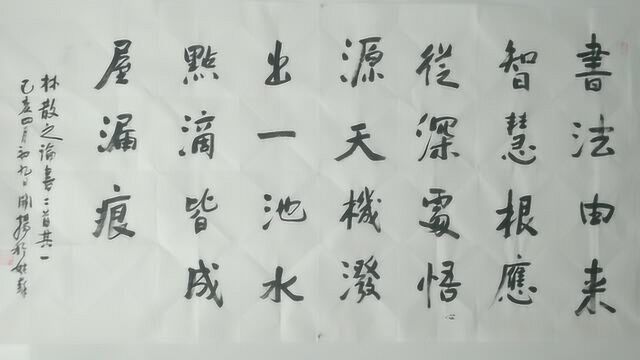 書法由来
智慧根應
從深處悟
心
源天機潑
出一池水
點滴皆成
屋漏痕
林散之論書二首其一
己亥四月初九日